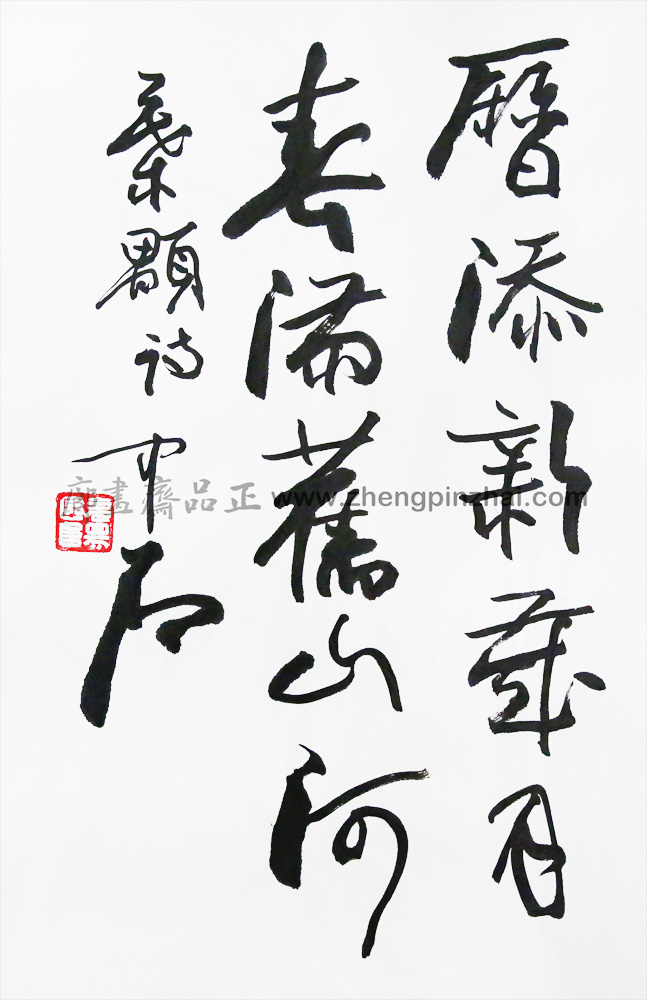 曆添新歲月
春滿舊山河
葉顒詩 中石
正品齋畫廊 www.zhengpinzhai.com